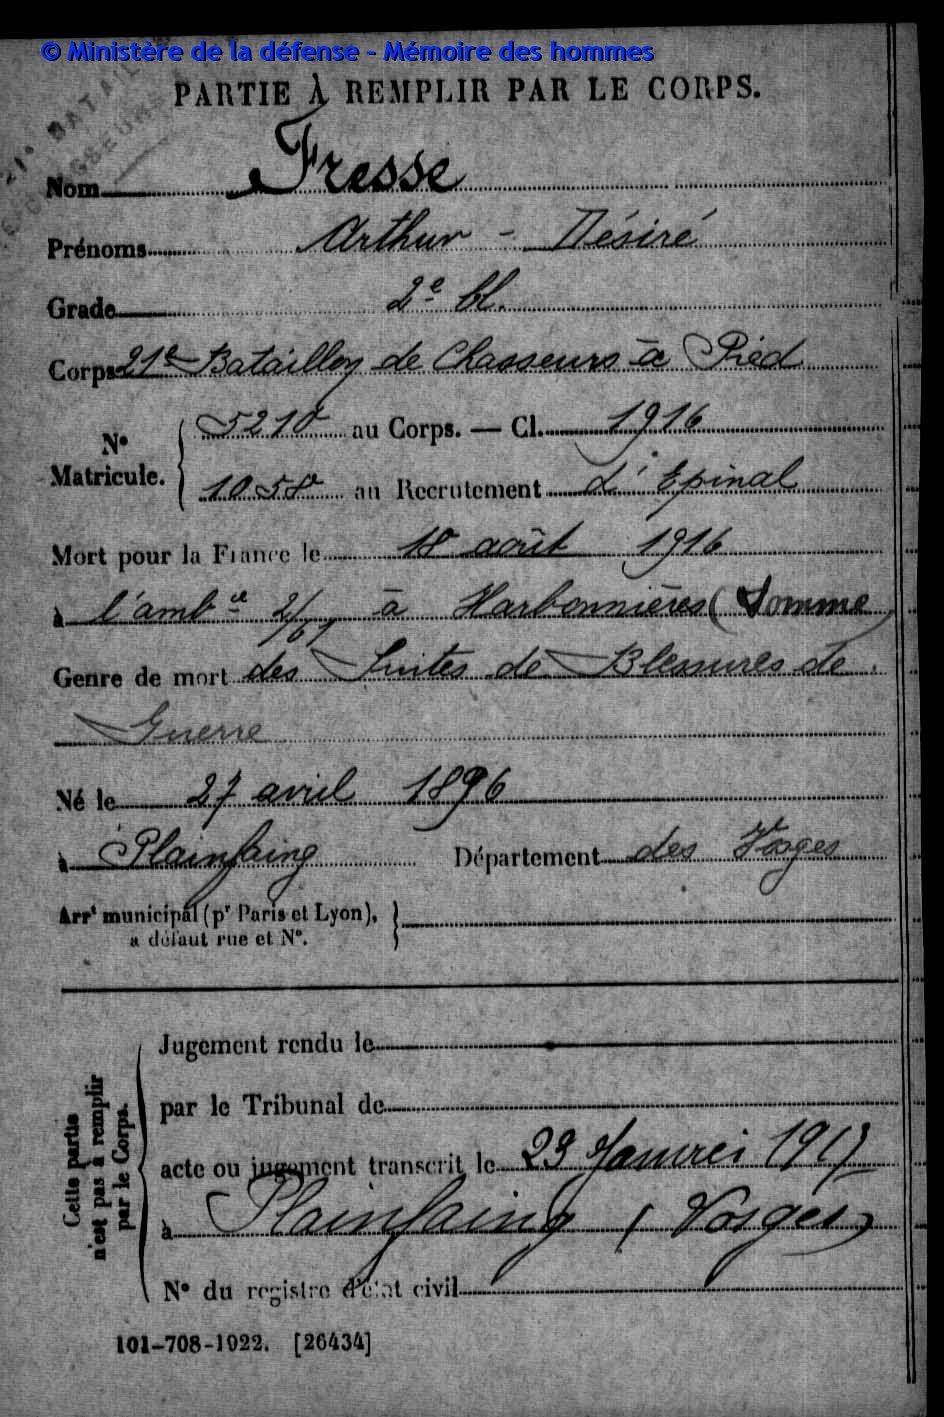 © Ministère de la défense - Mémoire des hommes
PARTIE À REMPLIR PAR LE CORPS.
21e BATAILLON
CHASSEURS À
Nom Fresse
Prénoms Arthur - Désiré
Grade 2e cl.
Corps 21e Bataillon de Chasseurs à Pied
N° Matricule. { 5210 au Corps. — Cl. 1916
1058 au Recrutement d'Epinal
Mort pour la France le 18 août 1916
à l'ambce 2/61 à Harbonnières (Somme)
Genre de mort des Suites de Blessures de
Guerre
Né le 27 avril 1896
à Plainfaing Département des Vosges
Arrt municipal (pr Paris et Lyon), }
à défaut rue et N°.
Cette partie n'est pas à remplir par le Corps.
Jugement rendu le
par le Tribunal de
acte ou jugement transcrit le 23 Janvier 1917
à Plainfaing (Vosges)
N° du registre d'état civil
101-708-1922. [26434]